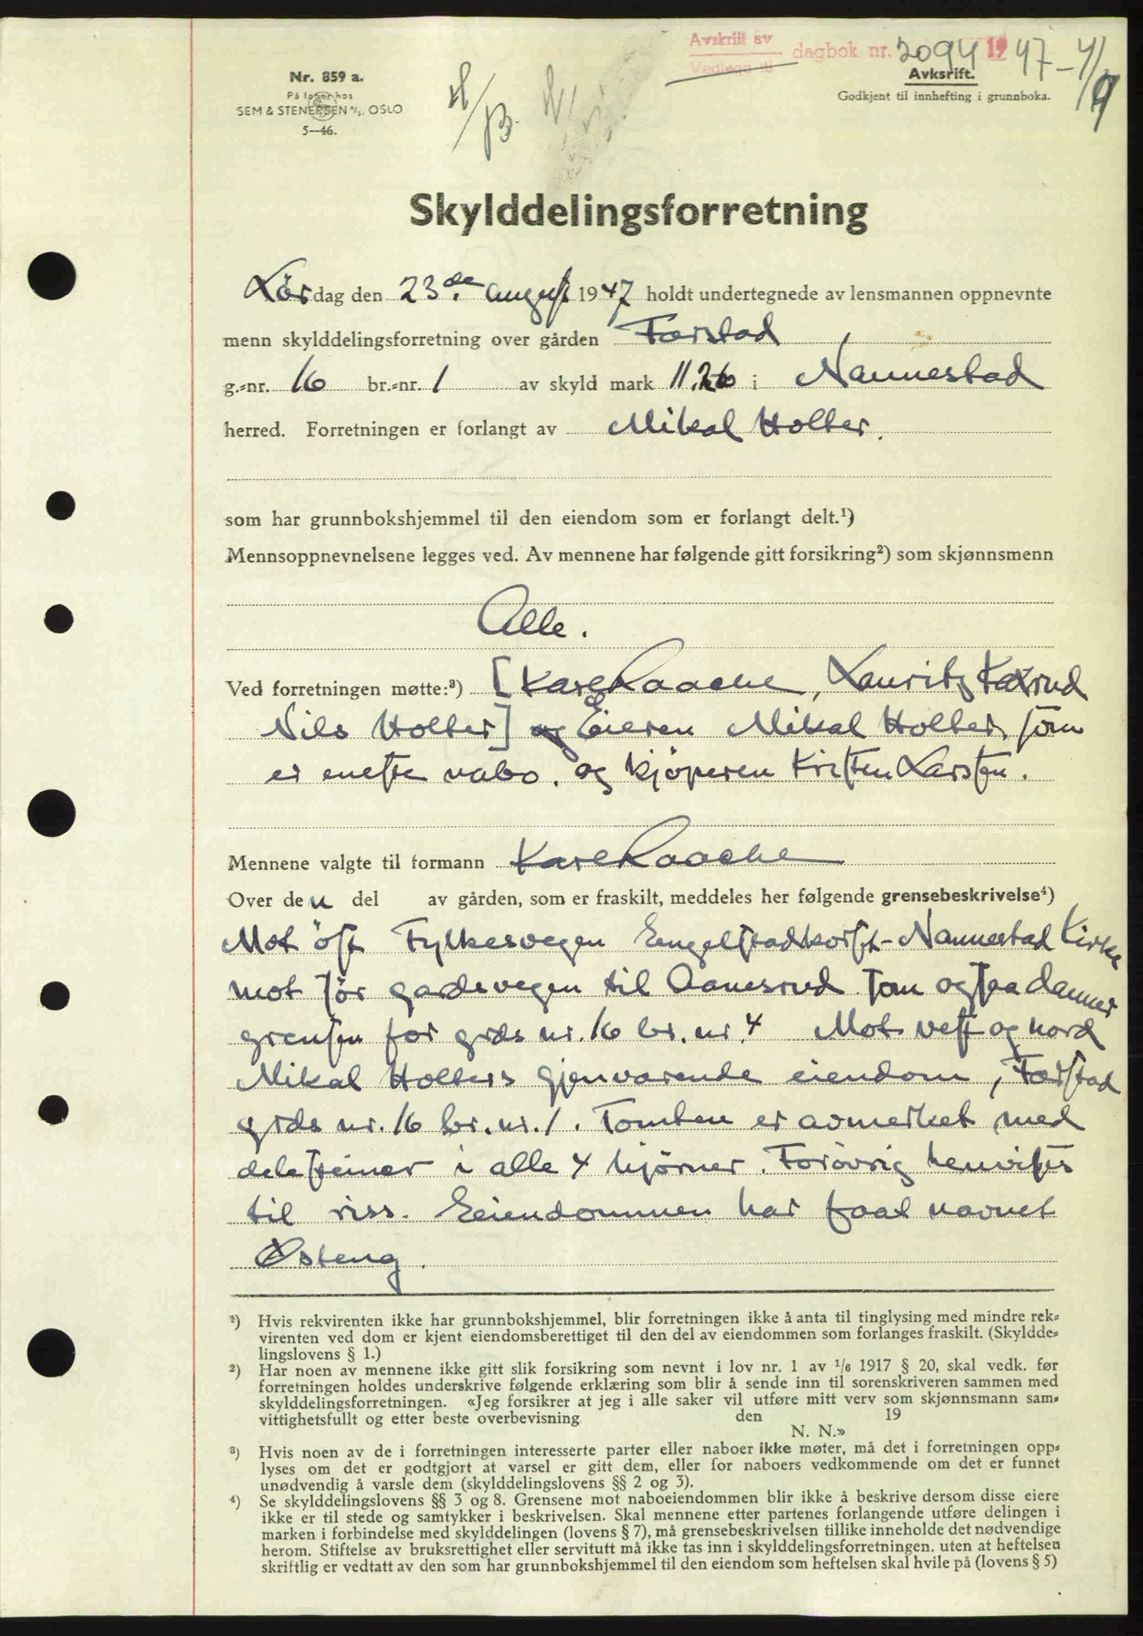 Avskrift av
Vedlegg til
dagbok nr. 2094 1947 - 4/9
Avksrift.
Godkjent til innhefting i grunnboka.
Nr. 859 a.
På lager hos
SEM & STENERSEN A/S. OSLO
5—46.
Skylddelingsforretning
Lördag den 23de august 1947 holdt undertegnede av lensmannen oppnevnte
menn skylddelingsforretning over gården Færstad
g.-nr. 16 br.-nr. 1 av skyld mark 11.26 i Nannestad
herred. Forretningen er forlangt av Mikal Holter.
som har grunnbokshjemmel til den eiendom som er forlangt delt.¹)
Mennsoppnevnelsene legges ved. Av mennene har følgende gitt forsikring²) som skjønnsmenn
Alle.
Ved forretningen møtte:³) [Kare Raache, Lauritz
Nils Holter] og Eieren Mikal Holter, som
er eneste nabo. og kjöperen Kristen Larsen.
Mennene valgte til formann Kare Raache
Over den del av gården, som er fraskilt, meddeles her følgende grensebeskrivelse⁴)
Mot öst Fylkesvegen Engelstadkorset - Nannestad Kirke
mot sör gardsvegen til Aanesrud som ogsaa danner
grensen for grds nr. 16 br. nr. 4 Mot vest og nord
Mikal Holters gjenvarende eiendom, Færstad
grds nr. 16 br. nr. 1. Tomten er avmerket med
delesteiner i alle 4 hjörner. Forövrig henvises
til riss. Eiendommen har faat navnet
Østeng.
¹) Hvis rekvirenten ikke har grunnbokshjemmel, blir forretningen ikke å anta til tinglysing med mindre rek-
virenten ved dom er kjent eiendomsberettiget til den del av eiendommen som forlanges fraskilt. (Skyldde-
lingslovens § 1.)
²) Har noen av mennene ikke gitt slik forsikring som nevnt i lov nr. 1 av 1/6 1917 § 20, skal vedk. før
forretningen holdes underskrive følgende erklæring som blir å sende inn til sorenskriveren sammen med
skylddelingsforretningen. «Jeg forsikrer at jeg i alle saker vil utføre mitt verv som skjønnsmann sam-
vittighetsfullt og etter beste overbevisning den 19
N. N.»
³) Hvis noen av de i forretningen interesserte parter eller naboer ikke møter, må det i forretningen opp-
lyses om det er godtgjort at varsel er gitt dem, eller for naboers vedkommende om det er funnet
unødvendig å varsle dem (skylddelingslovens §§ 2 og 3).
⁴) Se skylddelingslovens §§ 3 og 8. Grensene mot naboeiendommen blir ikke å beskrive dersom disse eiere
ikke er til stede og samtykker i beskrivelsen. Skal mennene etter partenes forlangende utføre delingen i
marken i forbindelse med skylddelingen (lovens § 7), må grensebeskrivelsen tillike inneholde det nødvendige
herom. Stiftelse av bruksrettighet eller servitutt må ikke tas inn i skylddelingsforretningen. uten at heftelsen
skriftlig er vedtatt av den som har grunnbokshjemmel til den eiendom som heftelsen skal hvile på (lovens § 5)